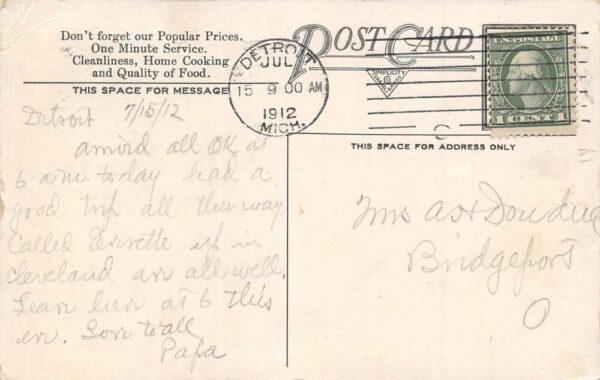 Don't forget our Popular Prices.
One Minute Service.
Cleanliness, Home Cooking
and Quality of Food.
THIS SPACE FOR MESSAGE
POST CARD
SIMPLICITY
DETROIT
JUL
15 9 00 AM
1912
MICH.
U.S. POSTAGE
1 CENT 1
THIS SPACE FOR ADDRESS ONLY
Detroit 7/15/12
arrived all OK at
6 a.m. today had a
good trip all the way
Called up in
Cleveland are all well.
Leave here at 6 this
eve. Love to all
Papa
Mrs
Bridgeport
O